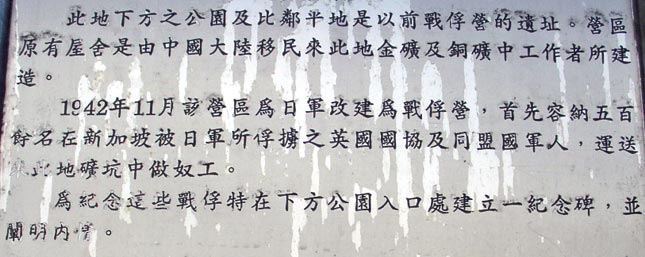 此地下方之公園及比鄰平地是以前戰俘營的遺址。營區
原有屋舍是由中國大陸移民來此地金礦及銅礦中工作者所建
造。
1942年11月該營區爲日軍改建爲戰俘營，首先容納五百
餘名在新加坡被日軍所俘擄之英國國協及同盟國軍人，運送
此地礦坑中做奴工。
爲紀念這些戰俘特在下方公園入口處建立一紀念碑，並
闡明內